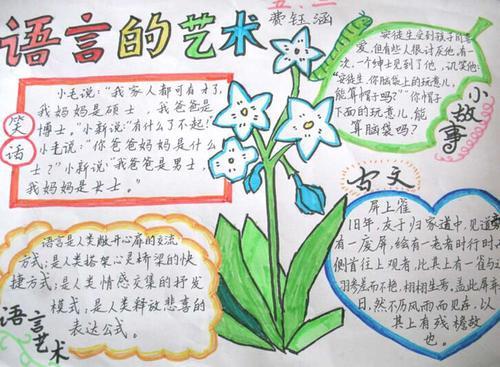 语言的艺术
五、二
费钰涵
笑话
小毛说:“我家人都可有才了,
我妈妈是硕士,我爸爸是
博士。”小新说:“有什么了不起!”
小毛说:“你爸爸妈妈是什么
士?”小新说:“我爸爸是男士,
我妈妈是女士。”
小故事
安徒生受到孩子们喜
爱,但有些人很讨厌他,有一
次,一个绅士见到了他,讥笑他:
“安徒生,你脑袋上的玩意儿,
能算帽子吗?”“你帽子
下面的玩意儿,能
算脑袋吗?”
语言艺术
语言是人类敞开心扉的交流
方式;是人类搭架心灵桥梁的快
捷方式;是人类情感交集的抒发
模式,是人类释放悲喜的
表达公式。
古文
屏上雀
旧年,友子归家道中,见道旁
有一废屏,绘有一老者时行时
侧首往上观者,比其上有一雀
羽参差而不艳,栩栩生焉,盖此屏
日,然不历风雨而见存,以
其上有残檐故
也。